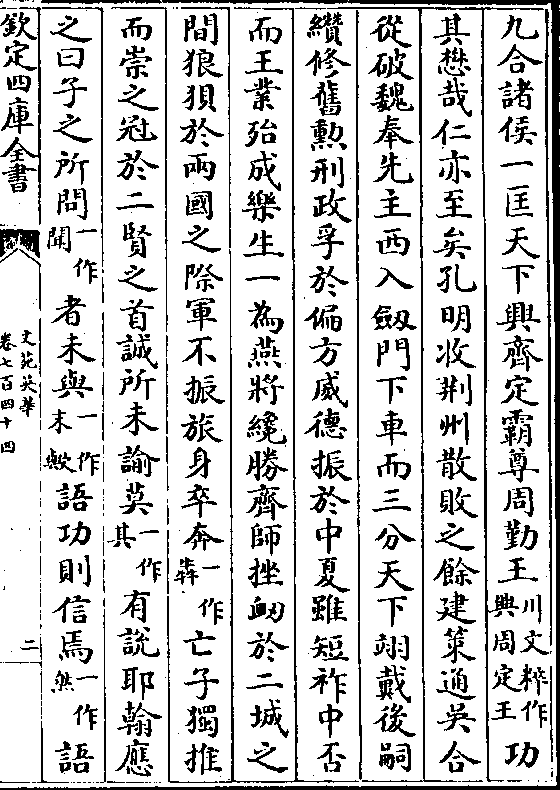 九合諸侯一匡天下興齊定霸尊周勤王川文粹作興周定王功
其懋哉仁亦至矣孔明收荆州散敗之餘建策通吳合
從破魏奉先主西入劔門下車而三分天下翊戴後嗣
纘修舊勲刑政孚於偏方威德振於中夏雖短祚中否
而王業殆成樂生一為燕將纔勝齊師挫衂於二城之
間狼狽於兩國之際軍不振旅身卒奔一作犇亡子獨推
而崇之冠於二賢之首誠所未諭莫一作其有說耶翰應
之曰子之所問一作聞者未與一作末歟語功則信焉一作然語
欽定四庫全書
文苑英華
卷七百四十四
二